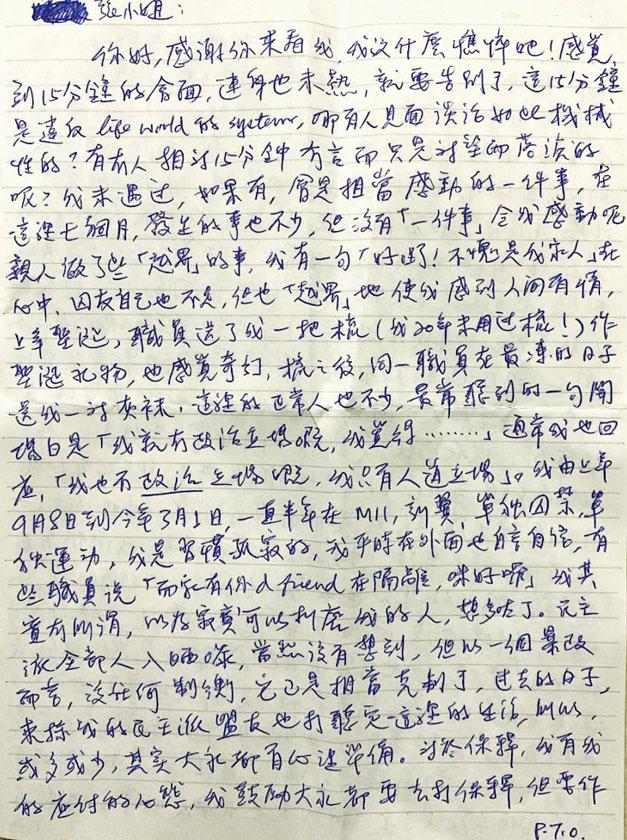 張小姐：
你好，感謝你來看我，我沒什麼憔悴吧！感覺
到15分鐘的會面，連身也未熱，就要告別了，這15分鐘
是違反 life world 的 system，哪有人見面談話如此機械
性的？有冇人相討15分鐘 冇言而只是對望而落淚的
呢？我未遇过，如果有，會是相當感動的一件事，在
這裡七個月，發生的事也不少，但沒有「一件事」令我感動呢
親人做了些「越界」的事，我有一句「好嘢！不愧是我家人」在
心中，囚友自己也不足，但也「越界」地使我感到人间有情，
上年聖誕，職員送了我一把梳（我20年未用过梳！）作
聖誕礼物，也感覺奇幻，梳之後，同一職員在最凍的日子
送我一対灰袜，這裡的正常人也不少，最常聽到的一句開
場白是「我就冇政治立場嘅，我覺得………」通常我也回
應，「我也冇政治立場嘅，我只有人道立場」。我由上年
9月8日到今年3月1日，一直半年在 M11，刻薄，單独囚禁，單
独運動，我是習慣孤寂的，我平時在外面也自言自語，有
些職員說「而家有你d friend 在隔離，咪好啲」我其
實冇所謂，以為寂寞可以折磨我的人，想多咗了。民主
派全部人入晒嚟，當然沒有想到，但以一個暴政
而言，沒任何制衡，它已是相當克制了，过去的日子，
來探我的民主派盟友也打聽定這裡的生活，所以，
或多或少，其实大家都有心理準備。对於保釋，我有我
的应付的心態，我鼓励大家都要去打保釋，但要作
P.T.O.